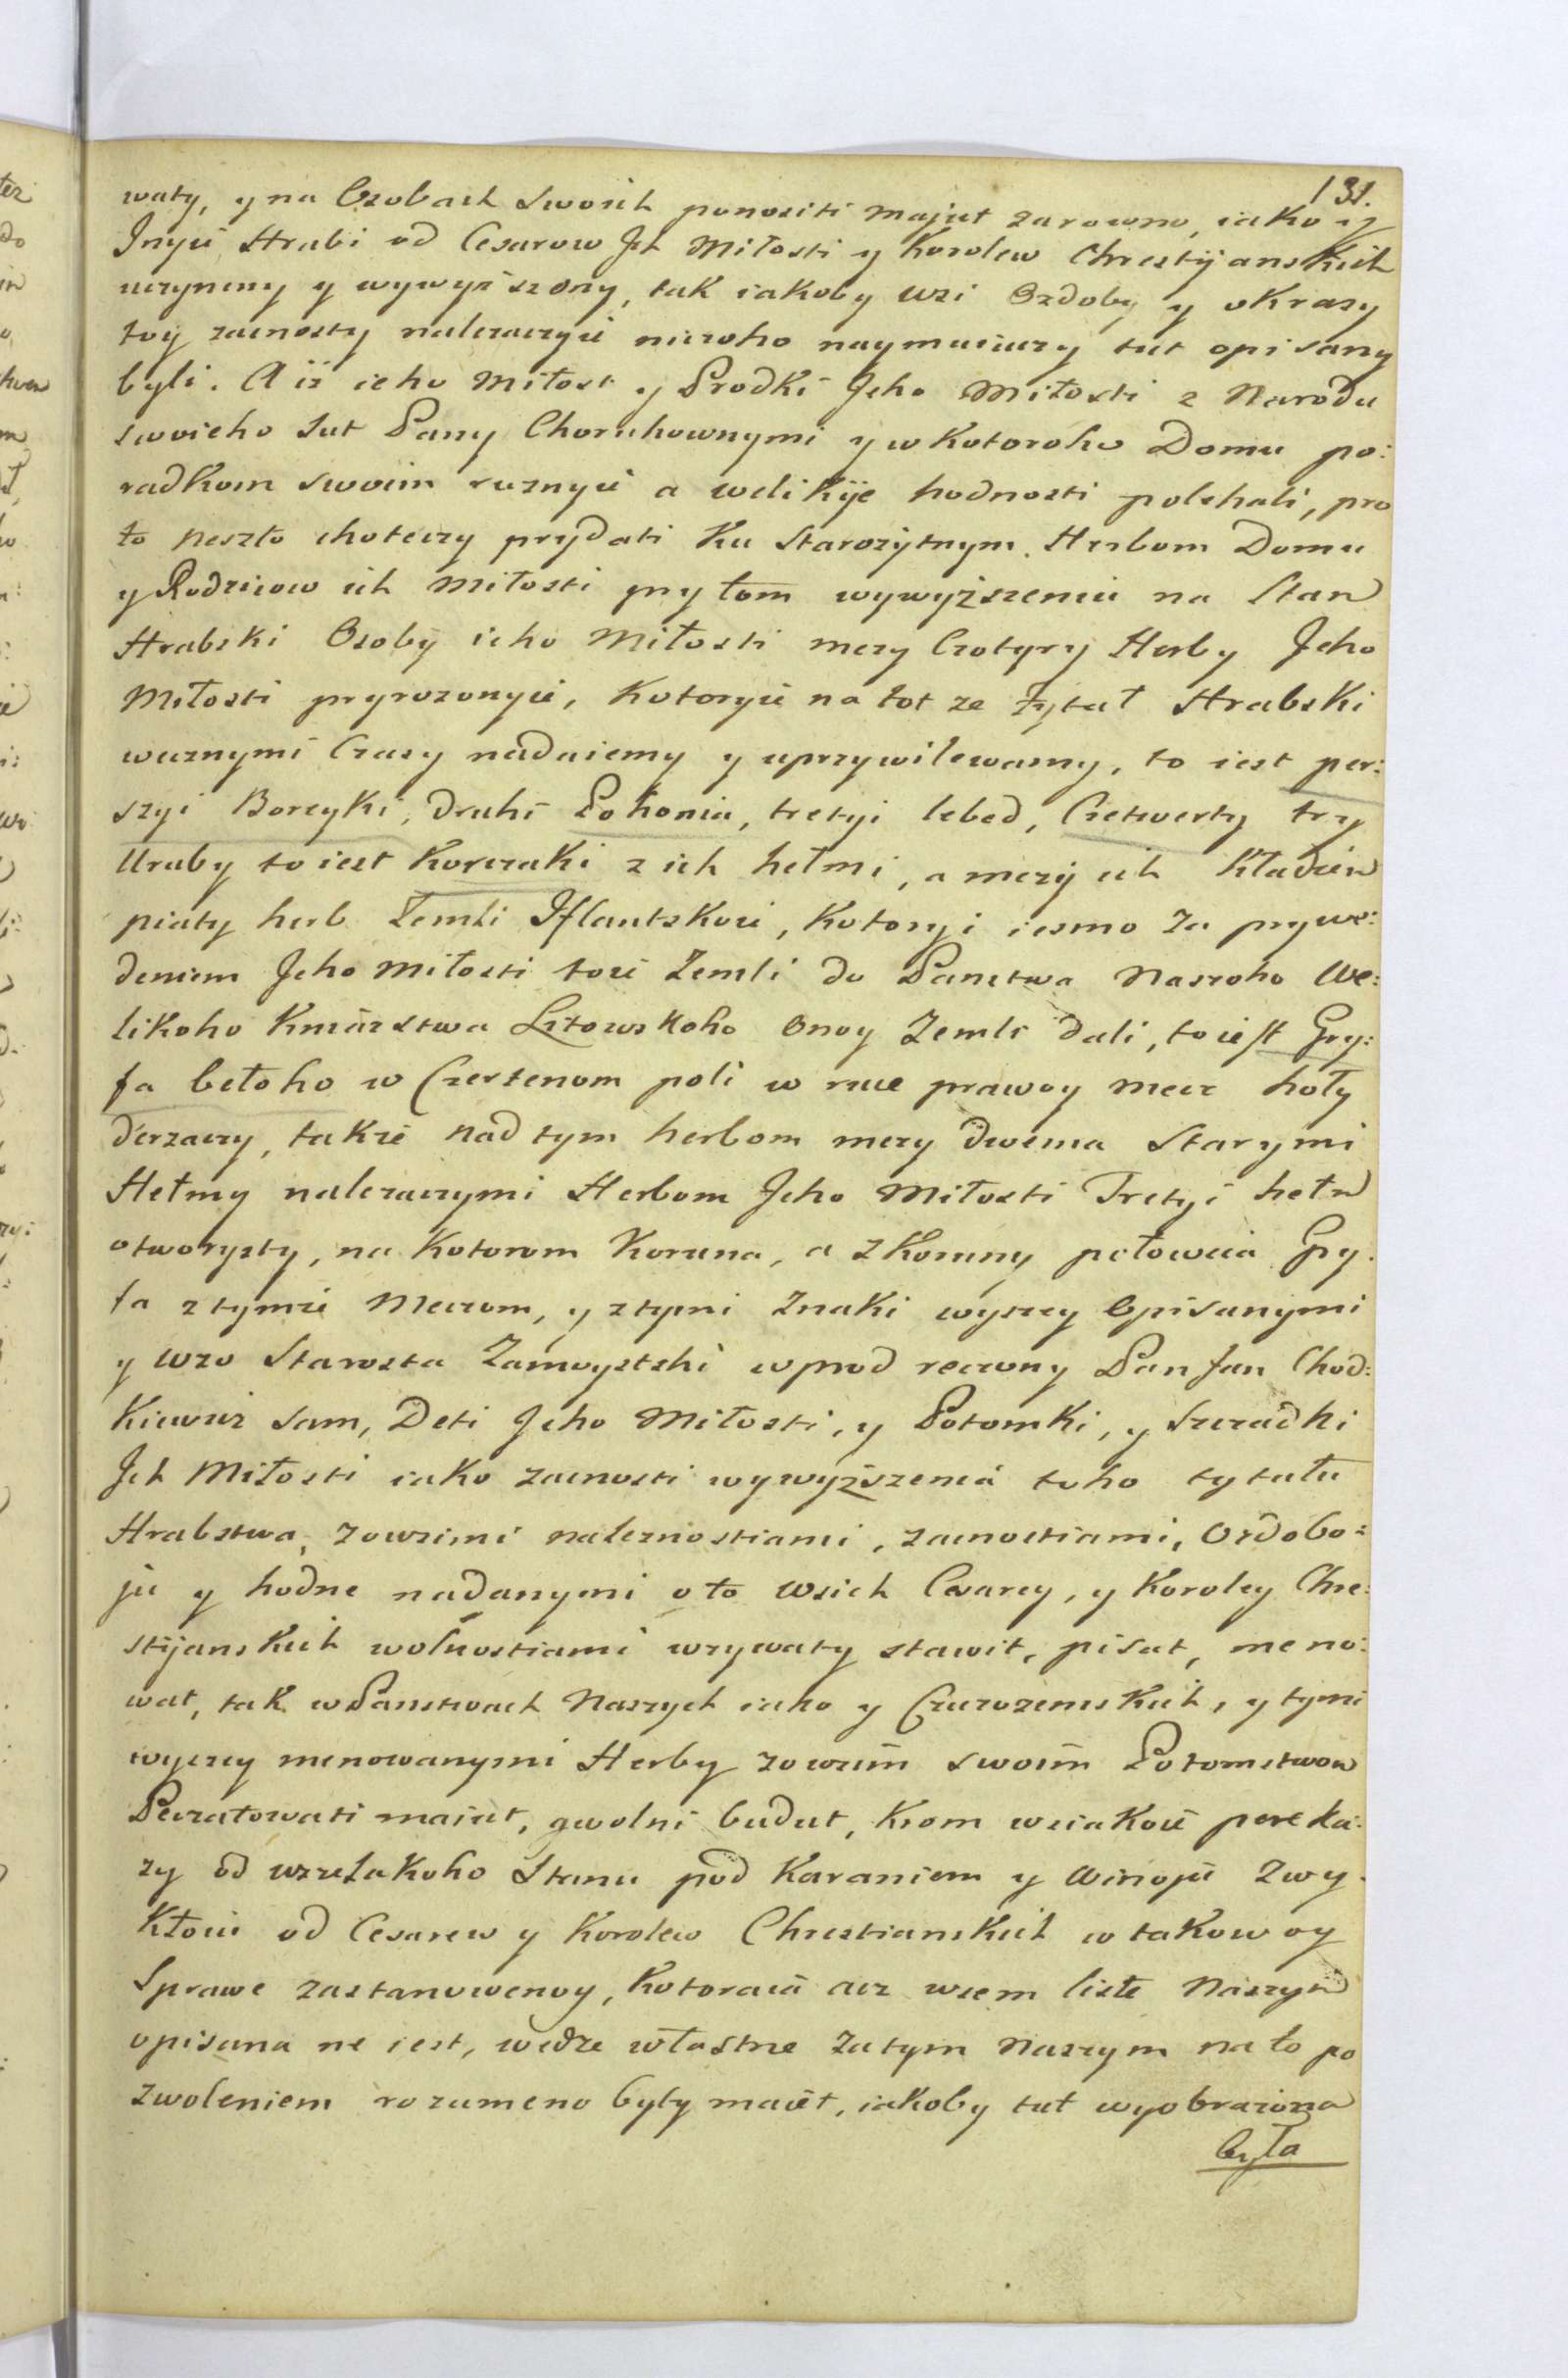 131.
waty, y na Osobach swoich ponositi majut zarowno, iako iz
Inyie Hrabi od Cesarow Jch Miłosti y Korolew Chrestijanskich
uczyneny y wywyiszony, tak iakoby wsi Ozdoby y okrasy
toy zacnosty należaczyie niczoho naymuieiszy tut opisany
byli. A iż ieho Miłost y Prodki Jeho Miłosti z Narodu
swoieho sut Pany Choruhownymi y w Kotoroho Domu po:
radkom swoim ruznyie a welikije hodnosti polehali, pro
to neszto choteczy prydati Ku Starożytnym Herbom Domu
y Rodzicow ich Miłosti pry tom wywyższeniu na Stan
Hrabski Osoby ieho Miłosti mezy Czotyry Herby Jeho
Miłosti pryrozonyie, Kotoryie na tot ze Tytuł Hrabski
wecznymi Czasy nadaiemy y uprzywilewamy, to iest per:
szyi Boreyki, druhi Pohonia, tretyi lebed, Czetwerty try
Uruby to iest Korczaki z ich hełmi, a mezy ich Kładem
piaty herb Zemli Iflantskoie, Kotoryi iesmo za prywe:
deniem Jeho Miłosti toie Zemli do Panstwa Naszoho We:
likoho Kniazstwa Litowskoho onoy Zemli dali, to iest Gry:
fa bełoho w Czerlenom poli w ruce prawoy mecz hoły
derzaczy, takze nad tym herbom mezy dwema Starymi
Hełmy należaczymi Herbom Jeho Miłosti Tretyi hełm
otworysty, na Kotorom Koruna, a z Koruny połowica Gry:
fa z tymże Meczom, y z tymi Znaki wyszey Opisanymi
y wzo Starosta Zamoytski wprod reczony Pan Jan Chod:
Kiewicz sam, Deti Jeho Miłosti, y Potomki, y Szczadki
Jch Miłosti iako zacnosti wywyższenia toho tytułu
Hrabstwa, zowsimi należnostiami, zacnostiami, Ozdobo:
ju y hodne nadanymi oto wsich Cesarey, y Koroley Chre:
stijanskich wolnostiami wzywaty stawit, pisat, meno:
wat, tak w Panstwach Naszych iako y Czuzozemskich, y tymi
wyszey menowanymi Herby zowsim swoim Potomstwom
Peczatowati maiut, y wolni budut, Krom wsiakoie pereka:
zy od wszelakoho Stanu pod Karaniem y Winoju Zwy:
Kłoiu od Cesarew y Korolew Chrestianskich w takowoy
Sprawe zastanowenoy, Kotoraia acz wsem liste Naszym
opisana ne iest, wedze własne za tym Naszym na to po
zwoleniem rozumeno byty maiet, iakoby tut wyobrazona
była